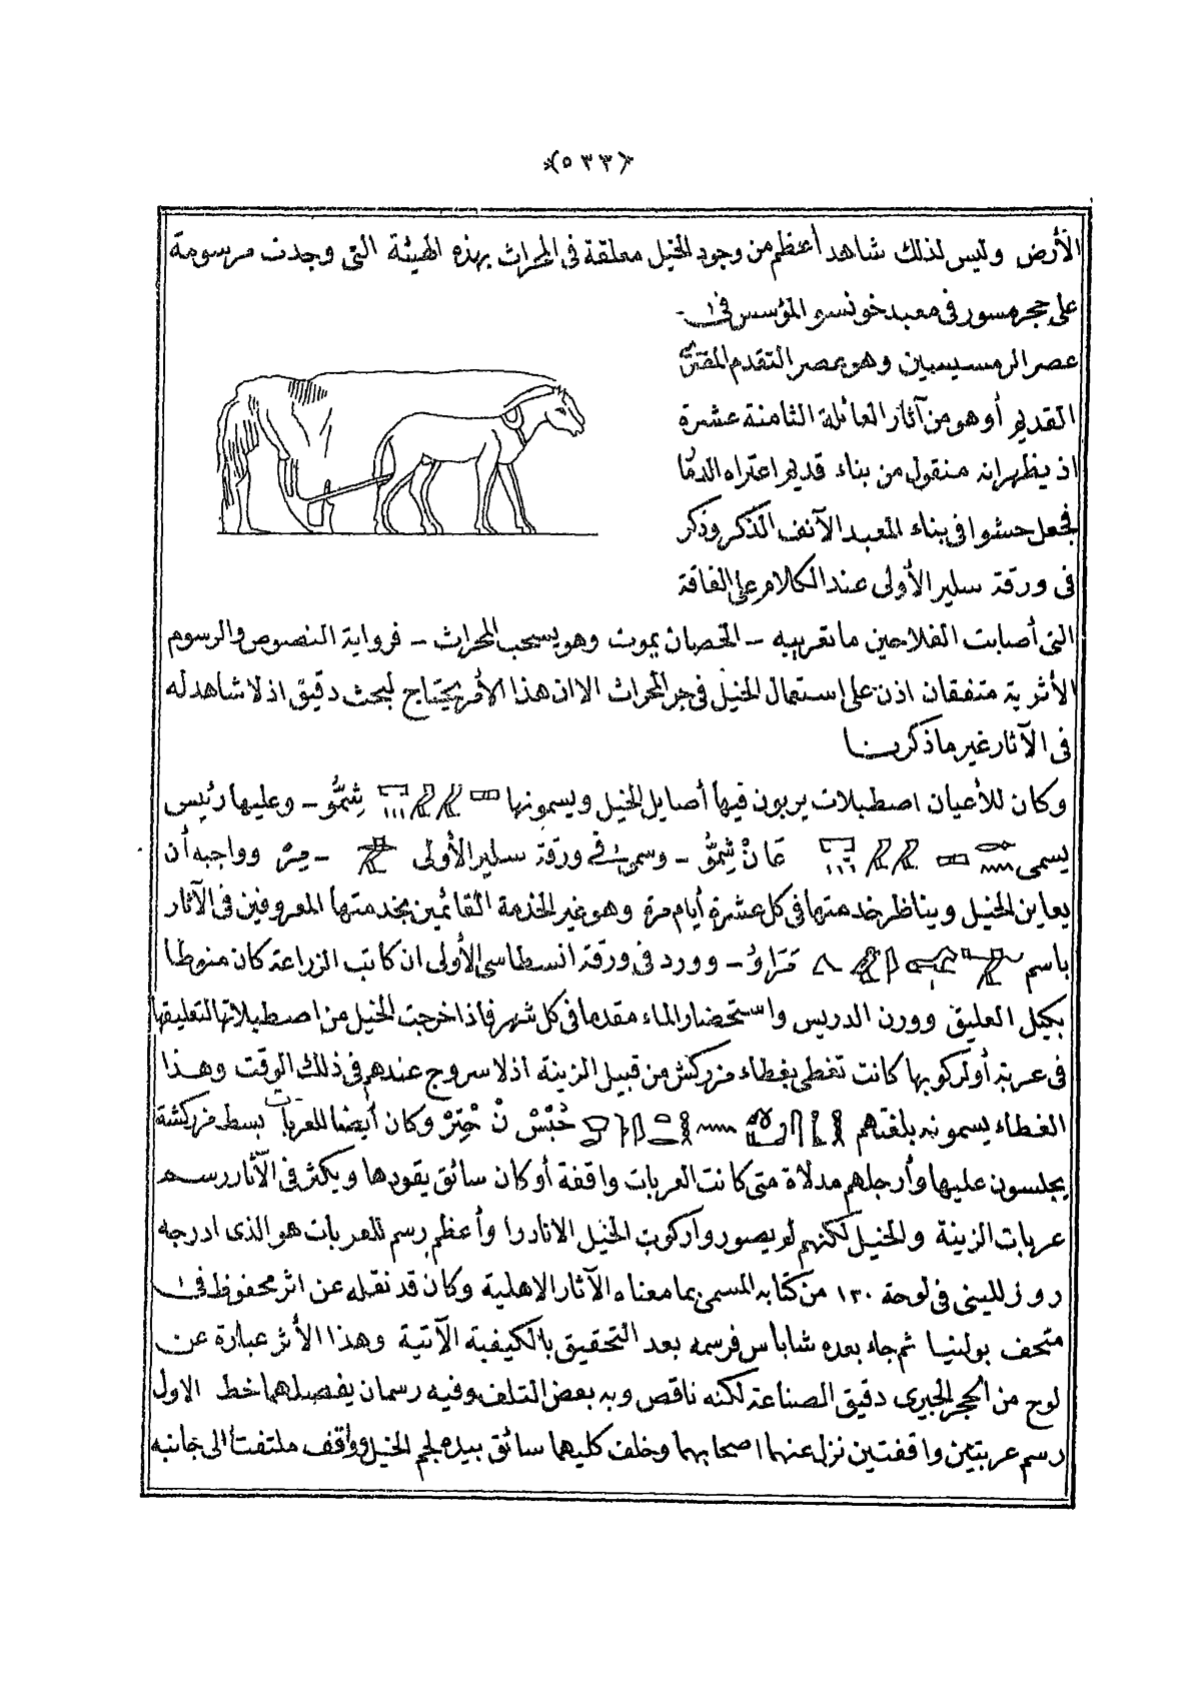 (٥٣٣)
الأرض وليس لذلك شاهد أعظم من وجود الخيل معلقة فى المحراث بهذه الهيئة التى وجدت مرسومة
على حجر مسور فى معبد خونسو المؤسس فى
عصر الرمسيسيين وهو عصر التقدم المقترن
القديم أو هو من آثار العائلة الثامنة عشرة
اذ يظهر انه منقول من بناء قديم اعتراه الدمار
فجعل حشوا فى بناء المعبد الآنف الذكر وذكر
فى ورقة سلير الأولى عند الكلام على الفاقة
التى أصابت الفلاحين ما تعريبه – الحصان يموت وهو يسحب المحراث – فرواية النصوص والرسوم
الأثرية متفقان اذن على استعمال الخيل فى جر المحراث الا ان هذا الأمر يحتاج لبحث دقيق اذ لا شاهد له
فى الآثار غير ما ذكرنا
وكان للأعيان اصطبلات يربون فيها أصايل الخيل ويسمونها شِمُّو – وعليها رئيس
يسمى عَانْ شِمُّو – وسمى فى ورقة سلير الأولى – مِرْ وواجبه أن
يعاين الخيل ويناظر خدمتها فى كل عشرة أيام مرة وهو غير الخدمة القائمين بخدمتها المعروفين فى الآثار
باسم مَرَاوُ – وورد فى ورقة انسطاسى الأولى ان كاتب الزراعة كان منوطا
بكيل العليق ووزن الدريس واستحضار الماء مقدما فى كل شهر فاذا خرجت الخيل من اصطبلاتها لتعليقها
فى عربة أو لركوبها كانت تغطى بغطاء مزركش من قبيل الزينة اذ لا سروج عندهم فى ذلك الوقت وهذا
الغطاء يسمونه بلغتهم حُبْسْ نْ حْتِرْ وكان أيضا للعربات بسط مزركشة
يجلسون عليها وأرجلهم مدلاة متى كانت العربات واقفة أو كان سائق يقودها ويكثر فى الآثار رسم
عربات الزينة والخيل لكنهم لم يصوروا ركوب الخيل الا نادرا وأعظم رسم للعربات هو الذى ادرجه
روزللينى فى لوحة ١٢٠ من كتابه المسمى بما معناه الآثار الاهلية وكان قد نقله عن اثر محفوظ فى
متحف بولنيا ثم جاء بعده شاباس فرسمه بعد التحقيق بالكيفية الآتية وهذا الأثر عبارة عن
لوح من الحجر الجيرى دقيق الصناعة لكنه ناقص وبه بعض التلف وفيه رسمان يفصلهما خط الاول
رسم عربتين واقفتين نزل عنهما اصحابهما وخلف كليهما سائق بيده لجم الخيل وواقف ملتفتا الى جانبه